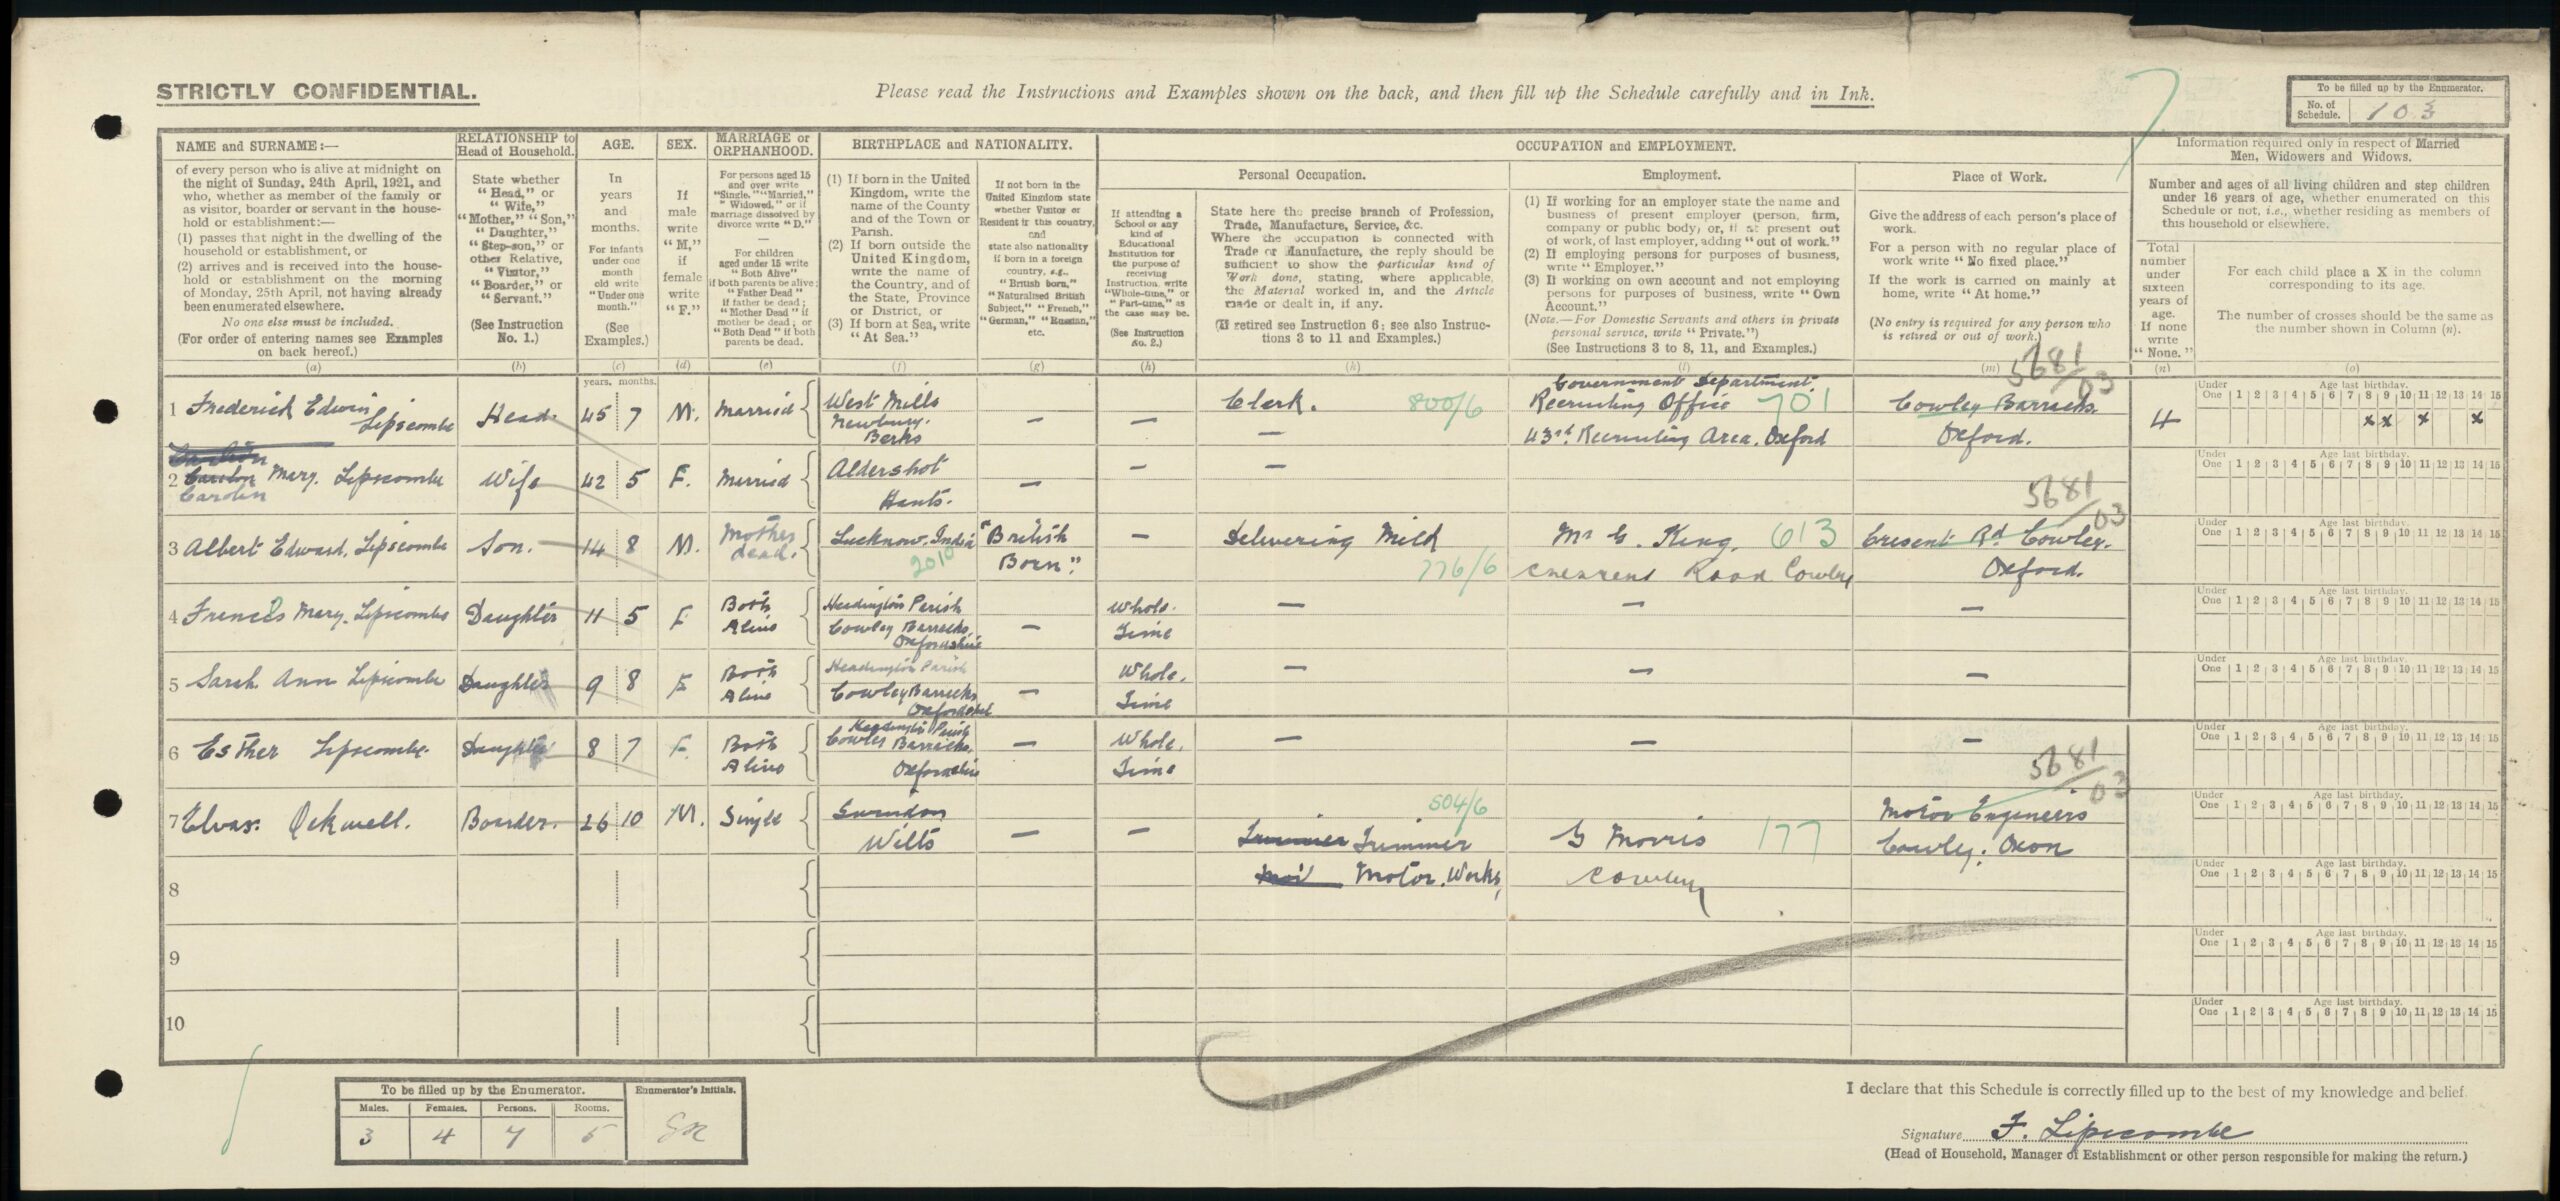 STRICTLY CONFIDENTIAL.
Please read the Instructions and Examples shown on the back, and then fill up the Schedule carefully and in Ink.
To be filled up by the Enumerator.
No. of Schedule. 103
NAME and SURNAME:—
of every person who is alive at midnight on
the night of Sunday, 24th April, 1921, and
who, whether as member of the family or
as visitor, boarder or servant in the house-
hold or establishment:—
(1) passes that night in the dwelling of the
household or establishment, or
(2) arrives and is received into the house-
hold or establishment on the morning
of Monday, 25th April, not having already
been enumerated elsewhere.
No one else must be included.
(For order of entering names see Examples
on back hereof.)
(a)
RELATIONSHIP to
Head of Household.
State whether
"Head," or
"Wife,"
"Mother," "Son,"
"Daughter,"
"Step-son," or
other Relative,
"Visitor,"
"Boarder," or
"Servant."
(See Instruction
No. 1.)
(b)
AGE.
In
years
and
months.
For infants
under one
month
old write
"Under one
month."
(See
Examples.)
(c)
years. months.
SEX.
If
male
write
"M,"
if
female
write
"F."
(d)
MARRIAGE or
ORPHANHOOD.
For persons aged 15
and over write
"Single," "Married,"
"Widowed," or if
marriage dissolved by
divorce write "D."
—
For children
aged under 15 write
"Both Alive"
if both parents be alive;
"Father Dead"
if father be dead;
"Mother Dead" if
mother be dead; or
"Both Dead" if both
parents be dead.
(e)
BIRTHPLACE and NATIONALITY.
(1) If born in the United
Kingdom, write the
name of the County
and of the Town or
Parish.
(2) If born outside the
United Kingdom,
write the name of
the Country, and of
the State, Province
or District, or
(3) If born at Sea, write
"At Sea."
(f)
If not born in the
United Kingdom state
whether Visitor or
Resident in this country,
and
state also nationality
if born in a foreign
country, e.g.,
"British born,"
"Naturalised British
Subject," "French,"
"German," "Russian,"
etc.
(g)
OCCUPATION and EMPLOYMENT.
If attending a
School or any
kind of
Educational
Institution for
the purpose of
receiving
Instruction, write
"Whole-time," or
"Part-time," as
the case may be.
(See Instruction
No. 2.)
(h)
Personal Occupation.
State here the precise branch of Profession,
Trade, Manufacture, Service, &c.
Where the occupation is connected with
Trade or Manufacture, the reply should be
sufficient to show the particular kind of
Work done, stating, where applicable,
the Material worked in, and the Article
made or dealt in, if any.
(If retired see Instruction 6; see also Instruc-
tions 3 to 11 and Examples.)
(k)
Employment.
(1) If working for an employer state the name and
business of present employer (person, firm,
company or public body) or, if at present out
of work, of last employer, adding "out of work."
(2) If employing persons for purposes of business,
write "Employer."
(3) If working on own account and not employing
persons for purposes of business, write "Own
Account."
(Note.—For Domestic Servants and others in private
personal service, write "Private.")
(See Instructions 3 to 8, 11, and Examples.)
(l)
Place of Work.
Give the address of each person's place of
work.
For a person with no regular place of
work write "No fixed place."
If the work is carried on mainly at
home, write "At home."
(No entry is required for any person who
is retired or out of work.)
(m)
Information required only in respect of Married
Men, Widowers and Widows.
Number and ages of all living children and step children
under 16 years of age, whether enumerated on this
Schedule or not, i.e., whether residing as members of
this household or elsewhere.
Total
number
under
sixteen
years of
age.
If none
write
"None."
(n)
For each child place a X in the column
corresponding to its age.
The number of crosses should be the same as
the number shown in Column (n).
(o)
Under One Age last birthday.
1 2 3 4 5 6 7 8 9 10 11 12 13 14 15
1 Frederick Edwin Lipscombe Head 45 7 M. Married West Mills Newbury. Berks — — Clerk. — 800/6 Government Department. Recruiting Office 701 43rd. Recruiting Area. Oxford Cowley Barracks. Oxford. 5681/03 4 x x x x
2 Carolin Mary. Lipscombe Wife 42 5 F. Married Aldershot Hants. — — —
Under One Age last birthday.
1 2 3 4 5 6 7 8 9 10 11 12 13 14 15
3 Albert Edward. Lipscombe Son. 14 8 M. Mother dead. Lucknow. India 2010 "British Born". — Delivering Milk 776/6 Mr G. King. 613 Road Cowley Cresent Rd Cowley. Oxford. 5681/03
Under One Age last birthday.
1 2 3 4 5 6 7 8 9 10 11 12 13 14 15
4 Frances Mary. Lipscombe Daughter 11 5 F Both Alive Headington Parish Cowley Barracks. Oxfordshire — Whole. Time — — —
Under One Age last birthday.
1 2 3 4 5 6 7 8 9 10 11 12 13 14 15
5 Sarah Ann Lipscombe Daughter 9 8 F Both Alive Headington Parish Cowley Barracks. — Whole. Time — — —
Under One Age last birthday.
1 2 3 4 5 6 7 8 9 10 11 12 13 14 15
6 Esther Lipscombe. Daughter 8 7 F. Both Alive Headington Parish Cowley Barracks. Oxfordshire — Whole. Time — — —
Under One Age last birthday.
1 2 3 4 5 6 7 8 9 10 11 12 13 14 15
7 Ockwell. Boarder. 26 10 M. Single Swindon Wilts — — Trimmer Motor. Works, 504/6 Morris Cowley 177 Motor Engineers Cowley. Oxon 5681/03
Under One Age last birthday.
1 2 3 4 5 6 7 8 9 10 11 12 13 14 15
8
Under One Age last birthday.
1 2 3 4 5 6 7 8 9 10 11 12 13 14 15
9
Under One Age last birthday.
1 2 3 4 5 6 7 8 9 10 11 12 13 14 15
10
Under One Age last birthday.
1 2 3 4 5 6 7 8 9 10 11 12 13 14 15
To be filled up by the Enumerator.
Males. Females. Persons. Rooms.
3 4 7 5
Enumerator's Initials.
I declare that this Schedule is correctly filled up to the best of my knowledge and belief.
Signature F. Lipscombe
(Head of Household, Manager of Establishment or other person responsible for making the return.)